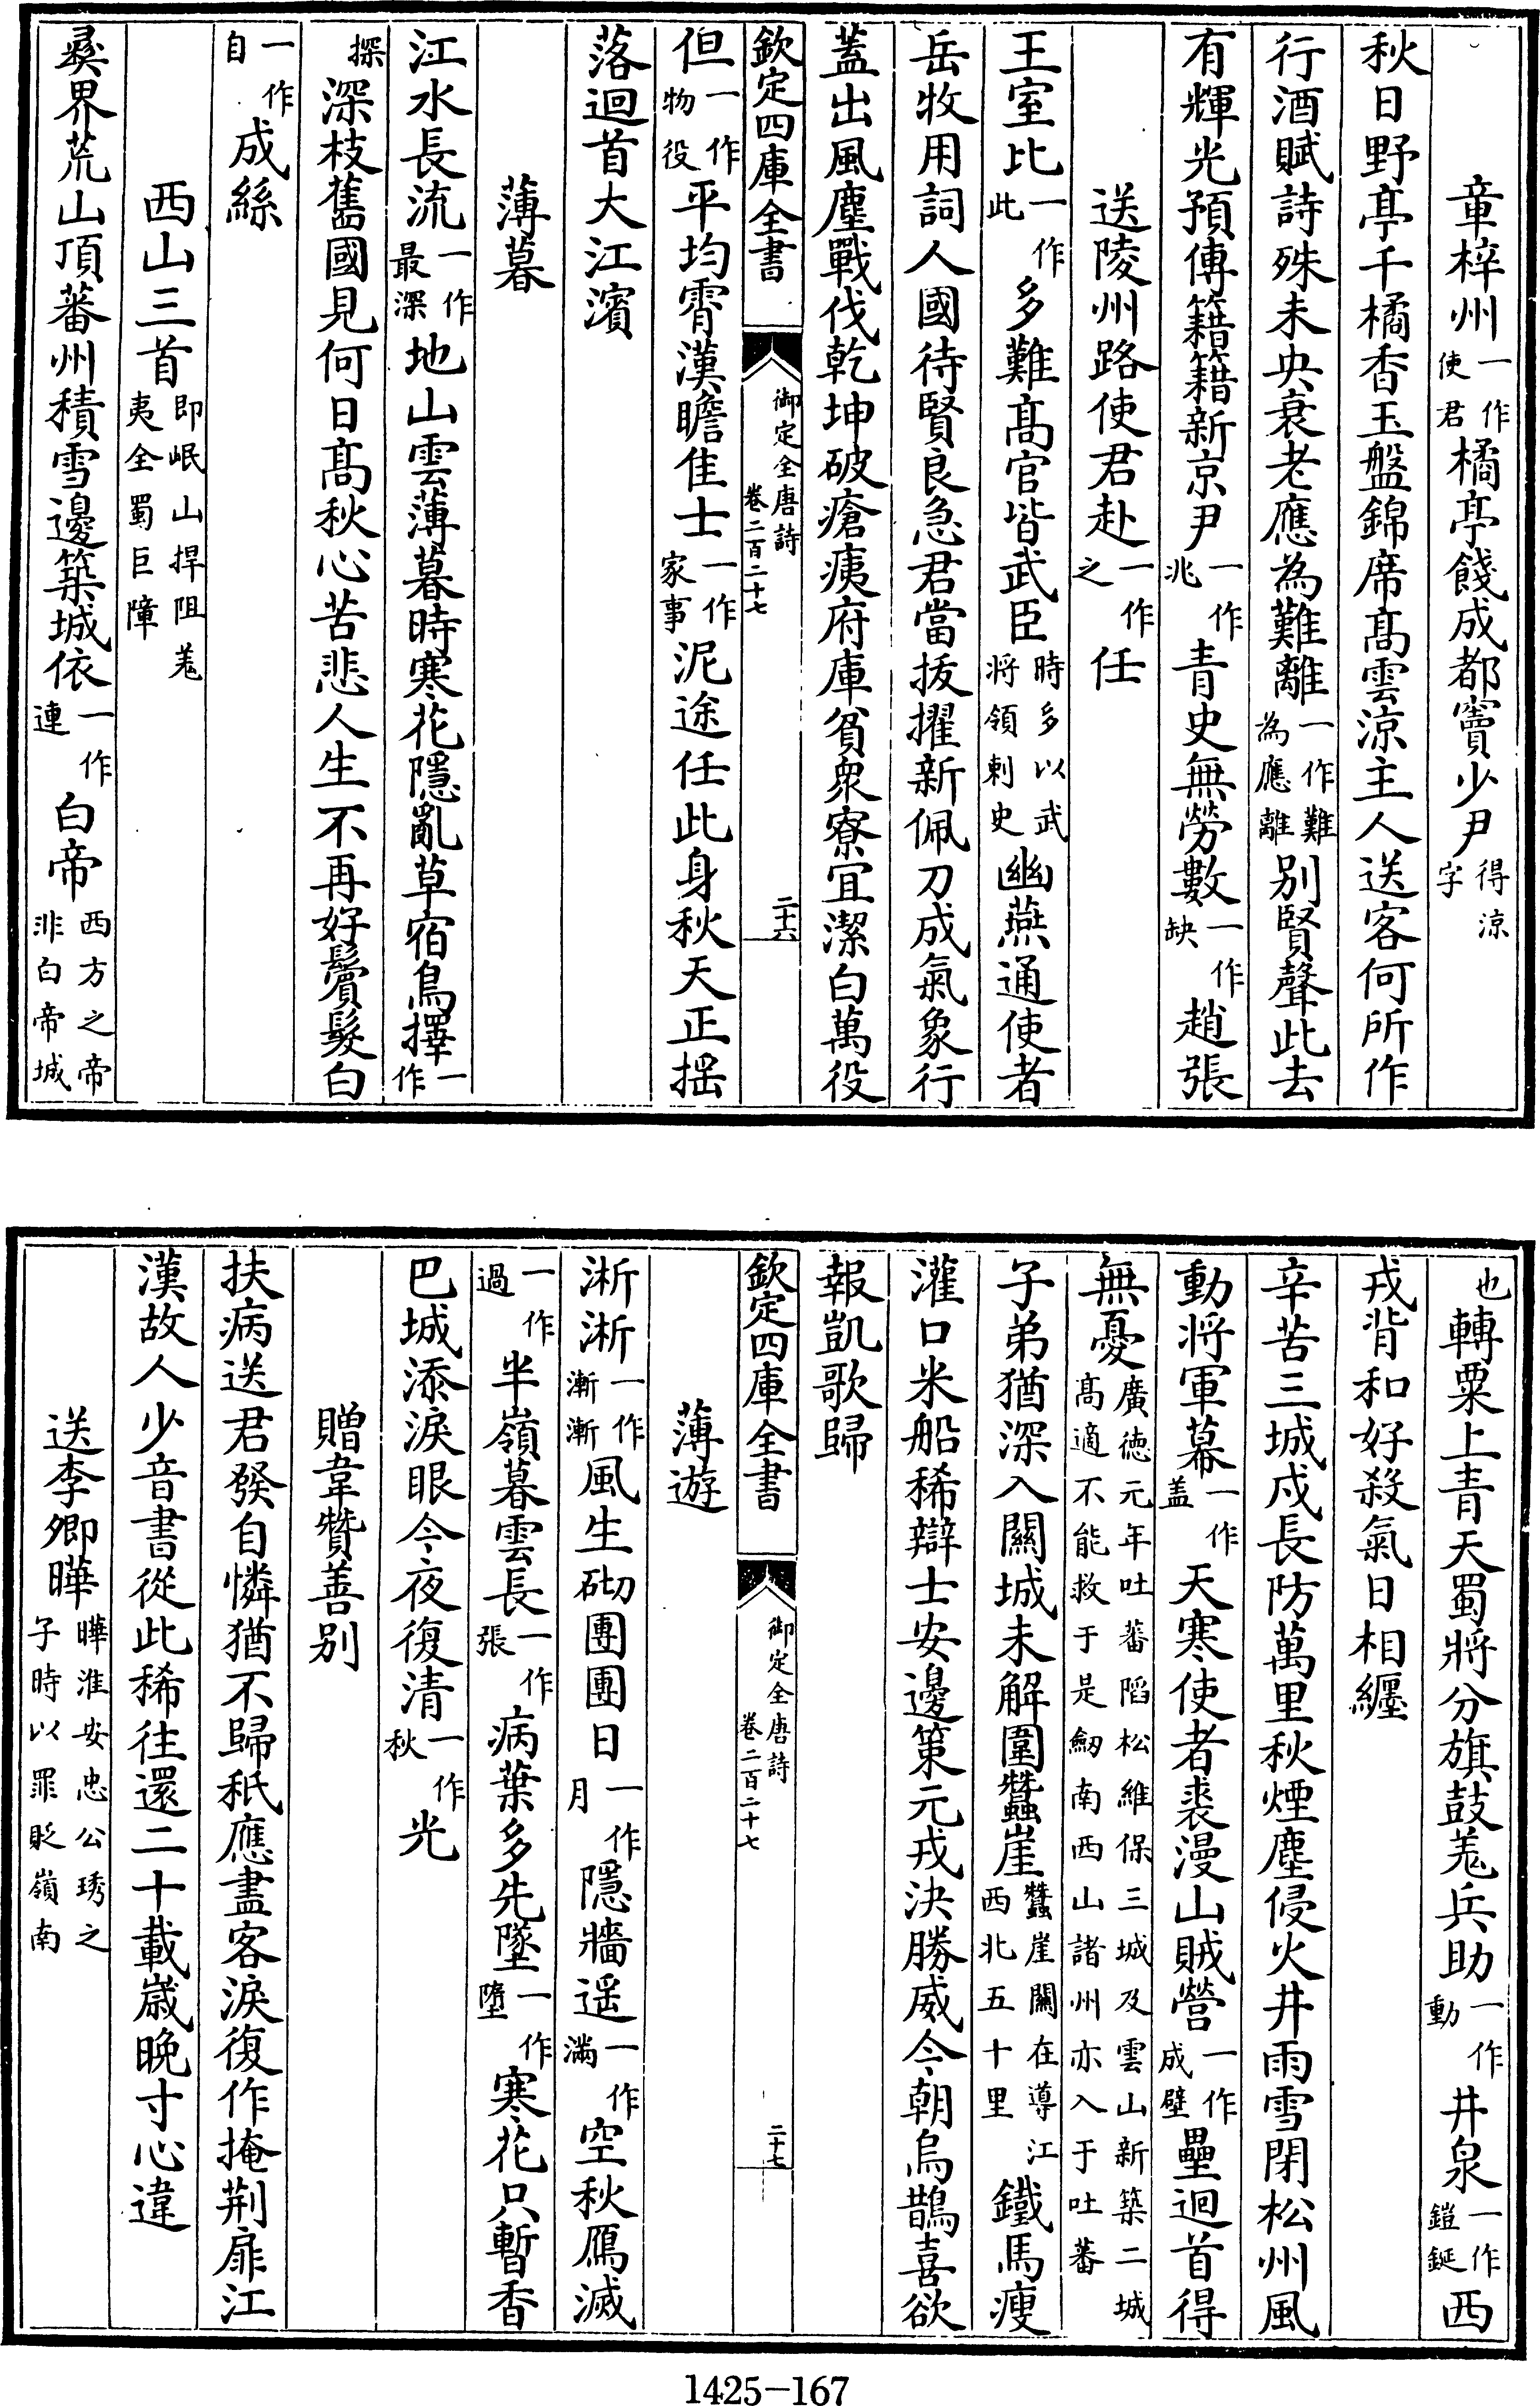 章梓州一作使君橘亭餞成都竇少尹得涼字
秋日野亭千橘香玉盤錦席髙雲涼主人送客何所作
行酒賦詩殊未央衰老應為難離一作難為應離别賢聲此去
有輝光預傳籍籍新京尹一作兆青史無勞數一作缺趙張
送陵州路使君赴一作之任
王室比一作此多難髙官皆武臣時多以武將領刺史幽燕通使者
岳牧用詞人國待賢良急君當拔擢新佩刀成氣象行
蓋出風塵戰伐乾坤破瘡痍府庫貧衆寮宜潔白萬役
欽定四庫全書 御定全唐詩卷二百二十七 二十六
但一作物役平均霄漢瞻佳士一作家事泥途任此身秋天正揺
落迴首大江濱
薄暮
江水長流一作最深地山雲薄暮時寒花隱亂草宿鳥擇一作
探深枝舊國見何日髙秋心苦悲人生不再好鬢髮白
一作自成絲
西山三首即岷山捍阻羗夷全蜀巨障
彜界荒山頂蕃州積雪邊築城依一作連白帝西方之帝非白帝城
也轉粟上青天蜀將分旗鼓羗兵助一作動井泉一作鎧鋋西
戎背和好殺氣日相纒
辛苦三城戍長防萬里秋煙塵侵火井雨雪閉松州風
動將軍幕一作盖天寒使者裘漫山賊營一作成壁壘迴首得
無憂廣徳元年吐蕃陷松維保三城及雲山新築二城髙適不能救于是劒南西山諸州亦入于吐蕃
子弟猶深入關城未解圍蠶崖蠶崖關在導江西北五十里鐵馬瘦
灌口米船稀辯士安邊策元戎決勝威今朝烏鵲喜欲
報凱歌歸
欽定四庫全書 御定全唐詩卷二百二十七 二十七
薄遊
淅淅一作漸漸風生砌團團日一作月隱牆遥一作滿空秋鴈滅
一作過半嶺暮雲長一作張病葉多先墜一作墮寒花只暫香
巴城添淚眼今夜復清一作秋光
贈韋贊善别
扶病送君發自憐猶不歸秖應盡客淚復作掩荆扉江
漢故人少音書從此稀往還二十載嵗晚寸心違
送李卿曄曄淮安忠公琇之子時以罪貶嶺南
1425-167